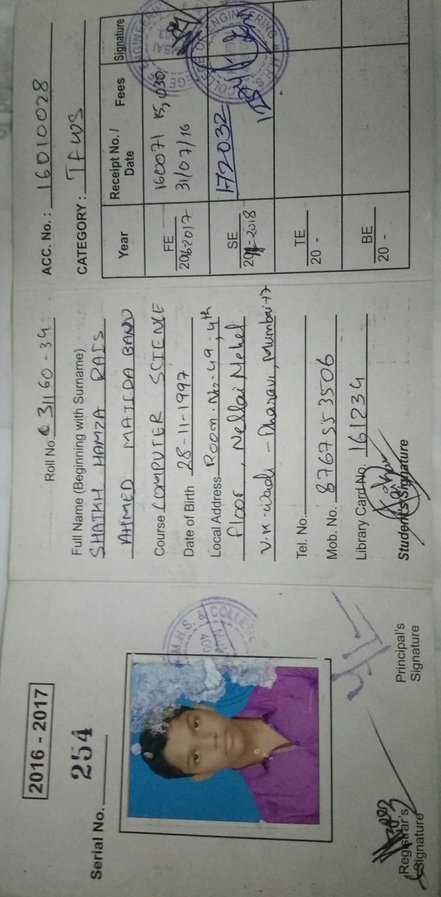 2016 - 2017
Serial No. 254
Registrar's Signature
Principal's Signature
Roll No. 31160-34
Full Name (Beginning with Surname)
SHAIKH HAMZA RAIS
AHMED MAJIDA BANO
Course COMPUTER SCIENCE
Date of Birth 28-11-1997
Local Address Room. No. 49, 4th
floor, Nellai Nehel
V.K. wadi - Dharavi, Mumbai-17
Tel. No.
Mob. No. 8767553506
Library Card No. 161234
Student's Signature
ACC. No. : 16010028
CATEGORY : TFWS
Year Receipt No. / Date Fees Signature
FE 2016-2017 160071 31/07/16 15,030
SE 2018 172032
TE 20 -
BE 20 -